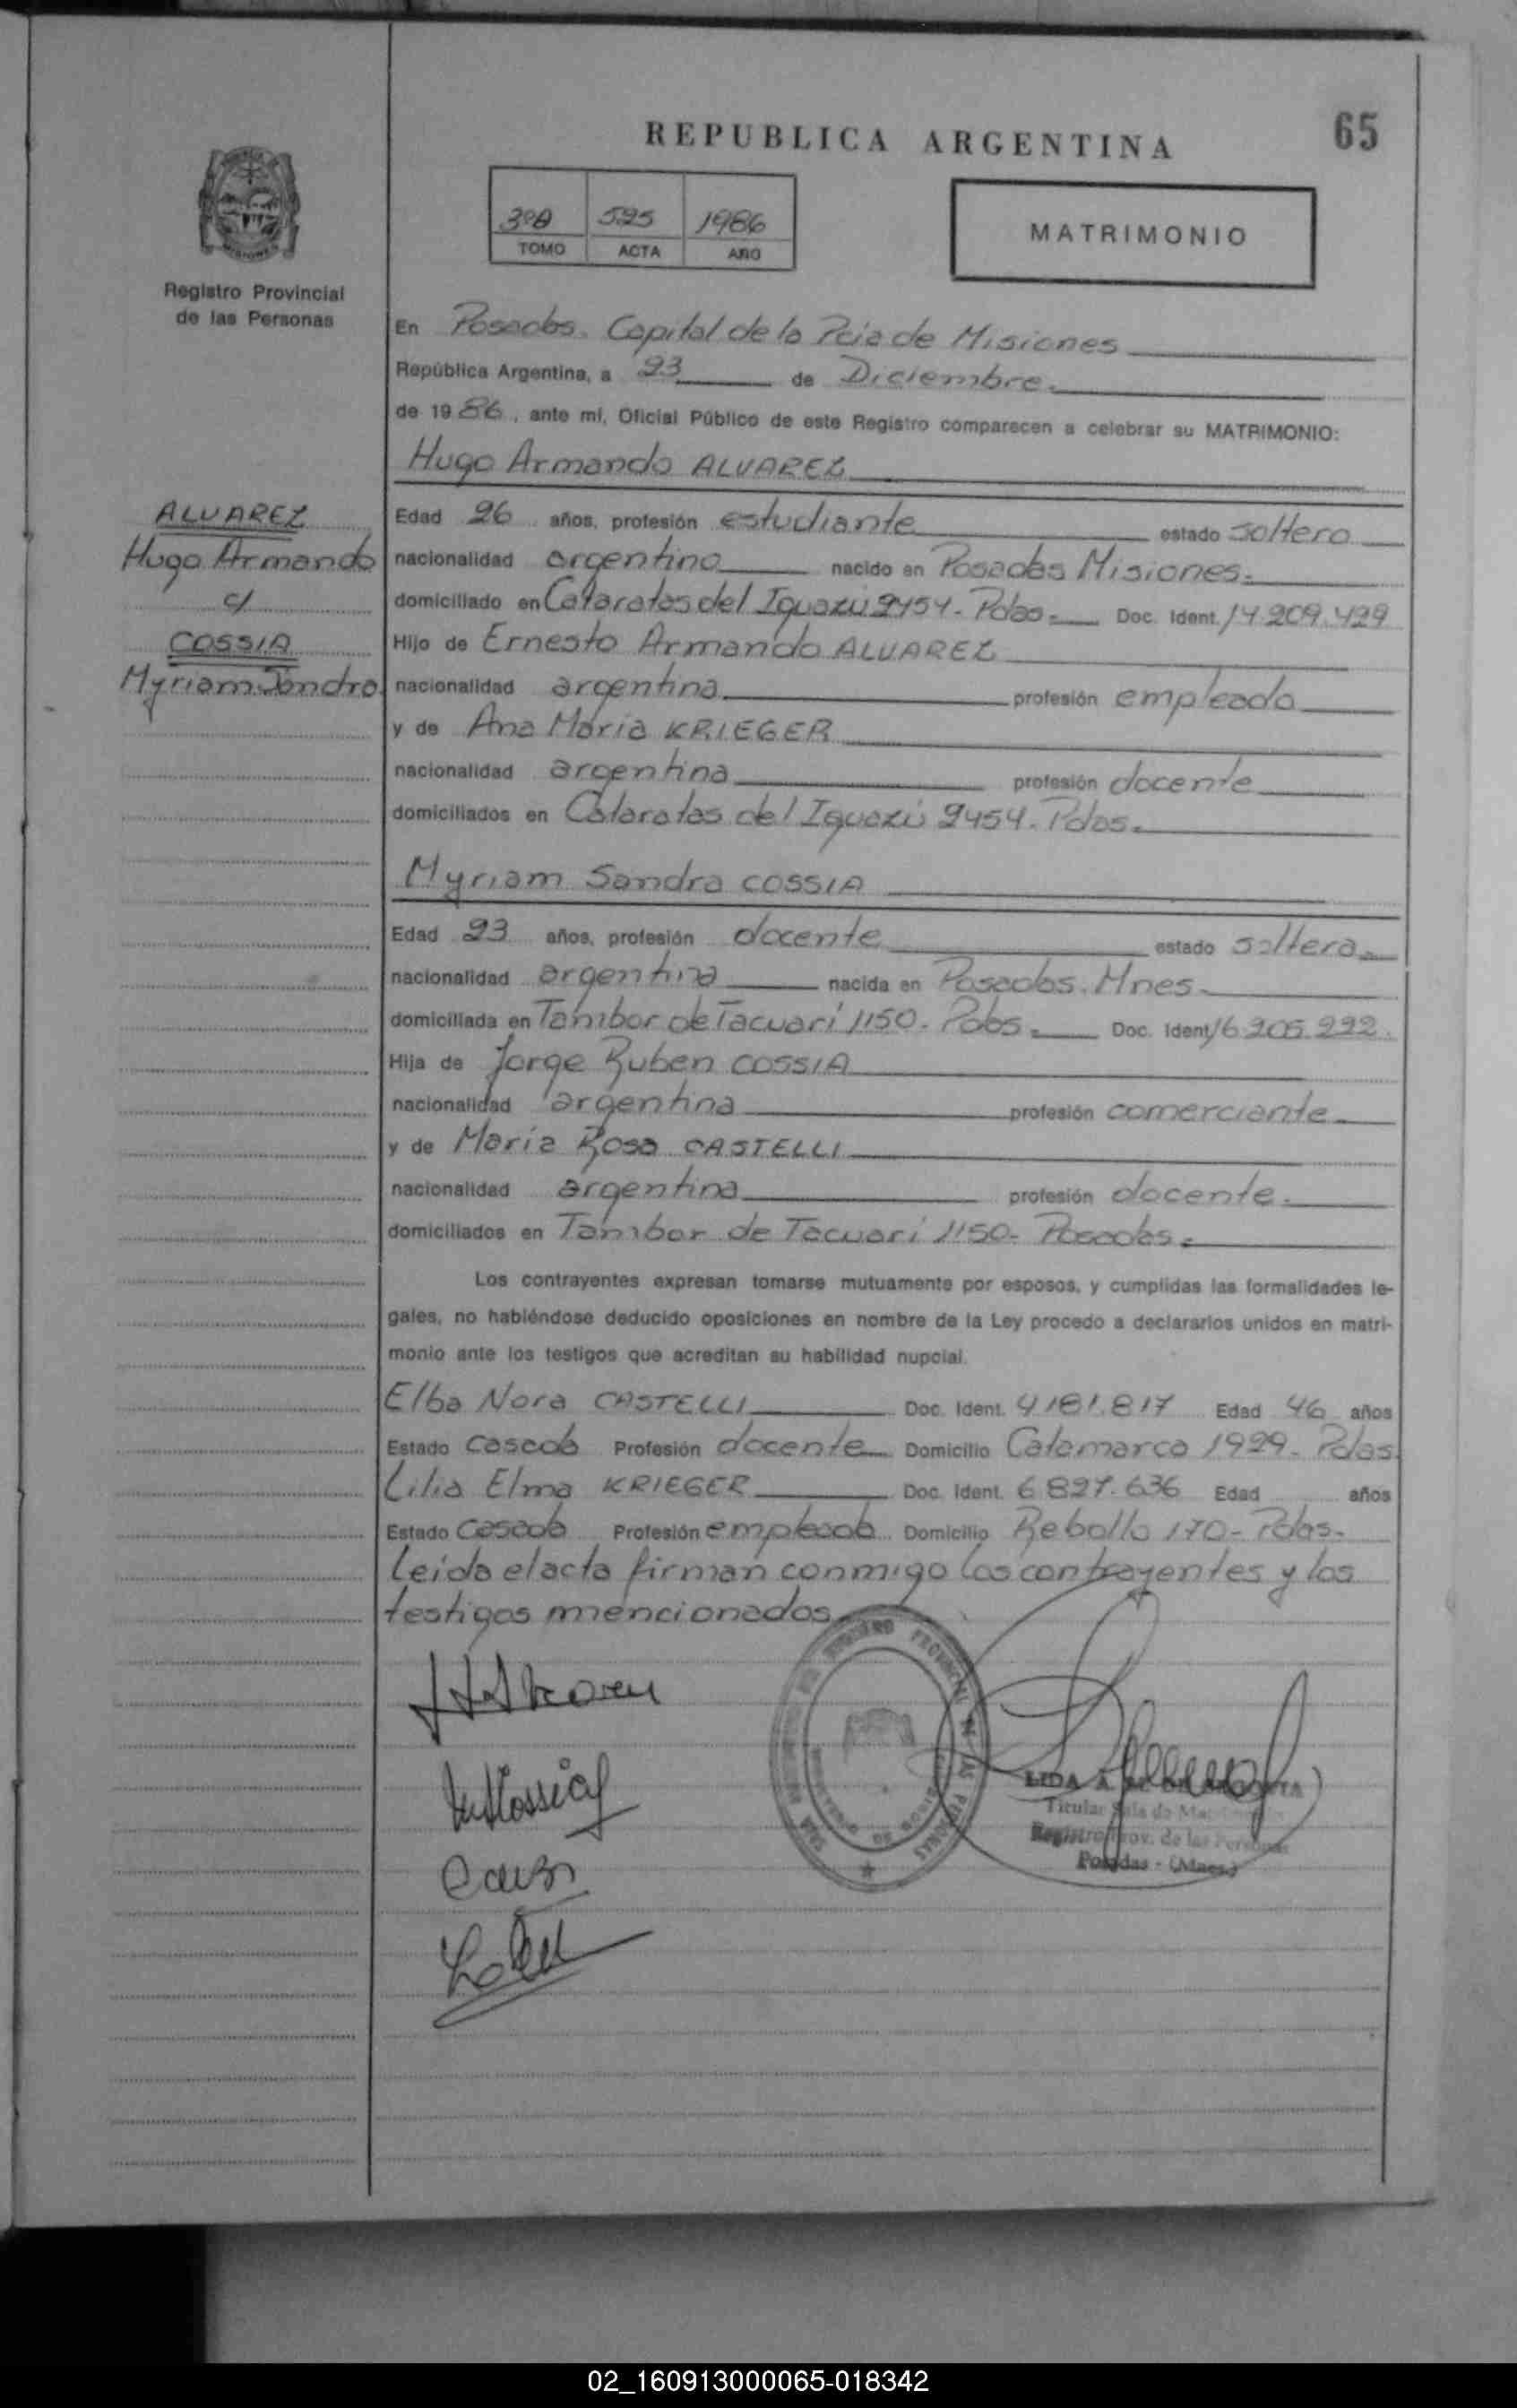 REPUBLICA ARGENTINA
65
525 1986
TOMO ACTA AÑO
MATRIMONIO
MISIONES
Registro Provincial
de las Personas
En Posadas. Capital de la Pcia de Misiones
República Argentina, a 23 de Diciembre.
de 1986, ante mí, Oficial Público de este Registro comparecen a celebrar su MATRIMONIO:
Hugo Armando ALVAREZ
ALVAREZ
Hugo Armando
c/
COSSIA
Myriam Sandra
Edad 26 años, profesión estudiante estado soltero
nacionalidad argentina nacido en Posadas Misiones.
domiciliado en Cataratas del Iguazú 2454 - Pdas. Doc. Ident. 14.209.429
Hijo de Ernesto Armando ALVAREZ
nacionalidad argentina profesión empleado
y de Ana María KRIEGER
nacionalidad argentina profesión docente
domiciliados en Cataratas del Iguazú 2454. Pdas.
Myriam Sandra COSSIA
Edad 23 años, profesión docente estado soltera
nacionalidad argentina nacida en Posadas. Mnes.
domiciliada en Tambor de Tacuarí 1150. Pdas. Doc. Ident. 16.205.222.
Hija de Jorge Ruben COSSIA
nacionalidad argentina profesión comerciante
y de María Rosa CASTELLI
nacionalidad argentina profesión docente.
domiciliados en Tambor de Tacuarí 1150- Posadas.
Los contrayentes expresan tomarse mutuamente por esposos, y cumplidas las formalidades le-
gales, no habiéndose deducido oposiciones en nombre de la Ley procedo a declararlos unidos en matri-
monio ante los testigos que acreditan su habilidad nupcial.
Elba Nora CASTELLI Doc. Ident. 4.181.817 Edad 46 años
Estado casada Profesión docente Domicilio Catamarca 1929- Pdas.
Lilia Elma KRIEGER Doc. Ident. 6.827.636 Edad años
Estado casada Profesión empleada Domicilio Rebollo 170- Pdas.
Leída el acta firman conmigo los contrayentes y los
testigos mencionados
LIDA A.
Titular Sala de
Registro Prov. de las Personas
Posadas - (Mnes.)
02_160913000065-018342